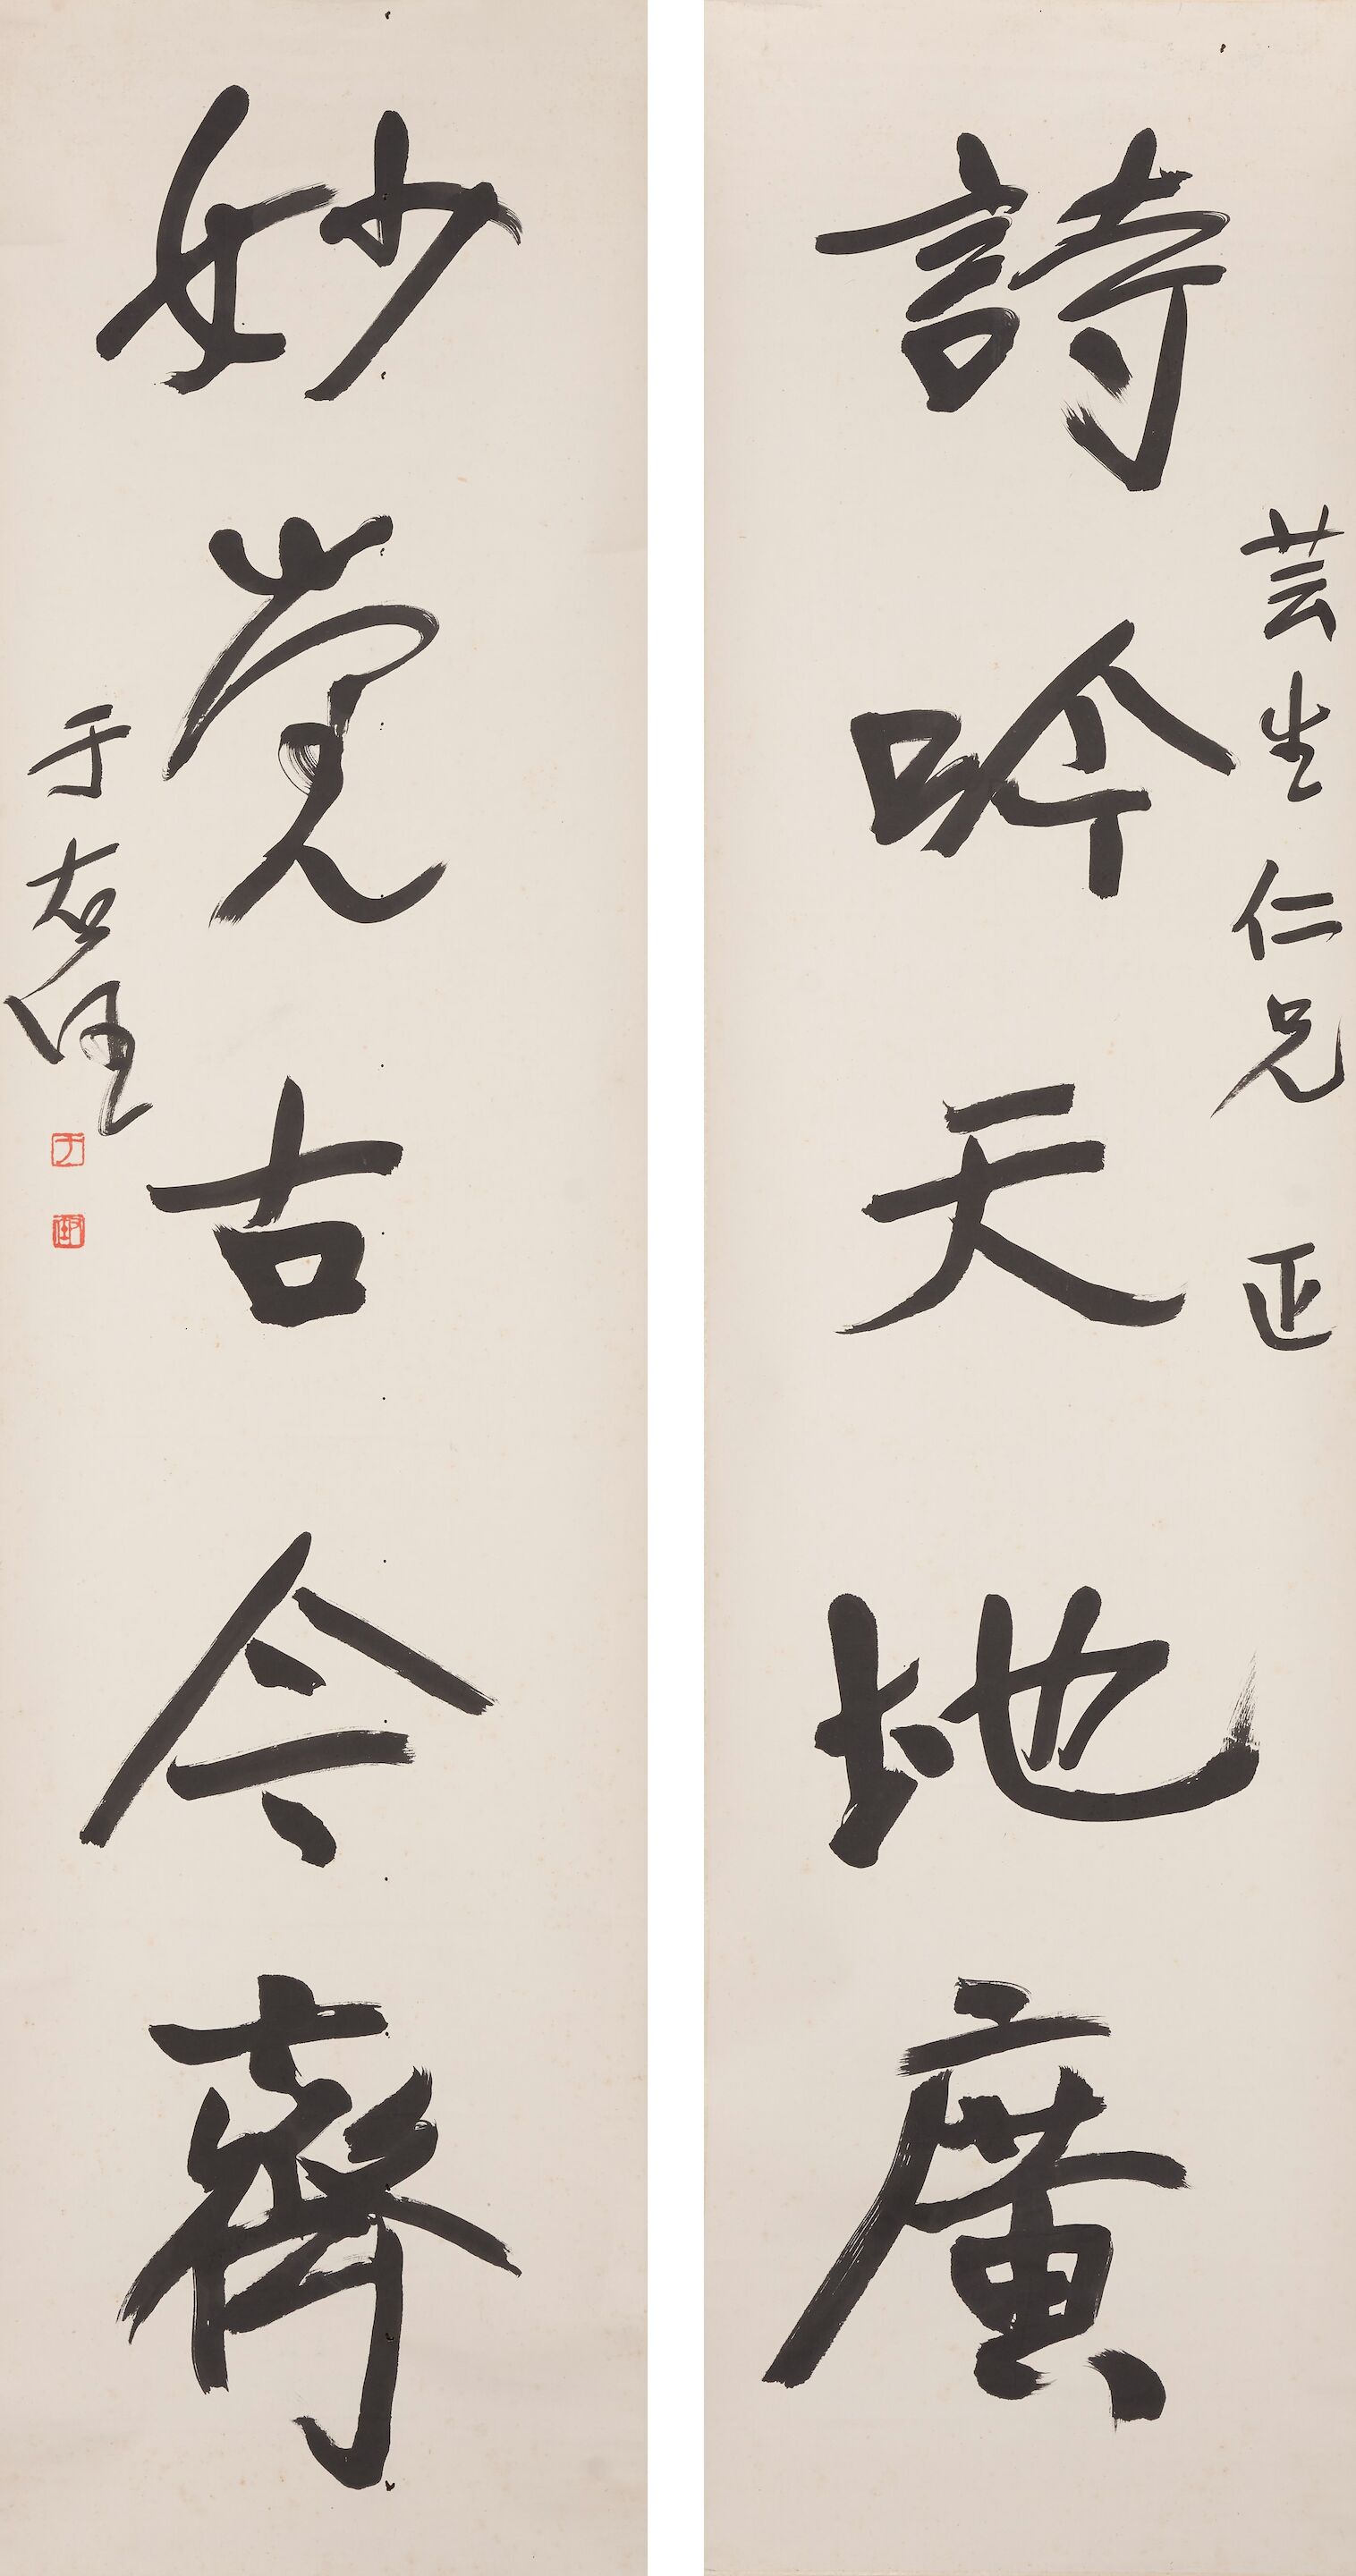 芸生仁兄 正
詩吟天地廣
妙覺古今齊
于右任
于